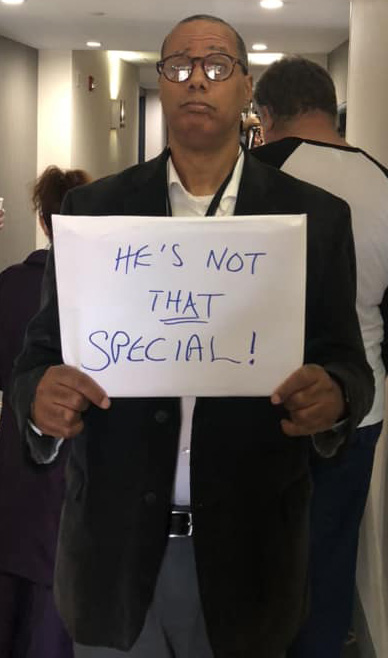 HE'S NOT
THAT
SPECIAL!